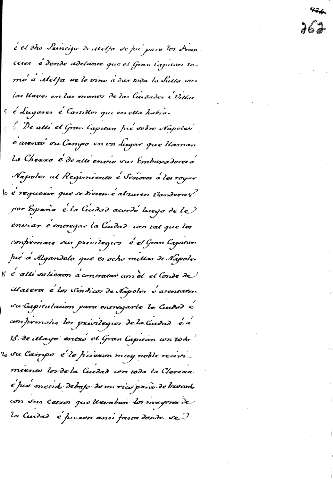 262
é el dho Principe de Melfa se fué para los Fran
ceses é donde adelante que el Gran Capitan to
mó á Melfa ve le vino á dar toda la Pulla con
las llaves en las manos de las Ciudades é Villas
é Lugares é Castillos que en ella había.
De alli el Gran Capitan fué sobre Napoles
é asentó su Campo en un Lugar que llaman
La Cherra é de alli envio sus Embaxadores á
Napoles al Regimiento é Señores á los rogar
é requerir que se diesen é alzasen Vanderas
por España é la Ciudad acordó luego de le
enviar é entregar la Ciudad con tal que les
confirmase sus privilegios é el Gran Capitan
fué á Algandolo que es ocho millas de Napoles
é alli salieron á contratar con él el Conde de
Matera é los Síndicos de Napoles é asentaron
su Capitulacion para entregarle la Ciudad é
confirmoles los privilegios de la Ciudad é á
15 de Mayo entró el Gran Capitan con todo
su Campo é le ficieron muy noble recivi
miento los de la Ciudad con toda la Clerecía
é fué metido debajo de un rico paño de brocado
con sus cetros que llevaban los mayores de
la Ciudad é fueron ansi fasta donde se